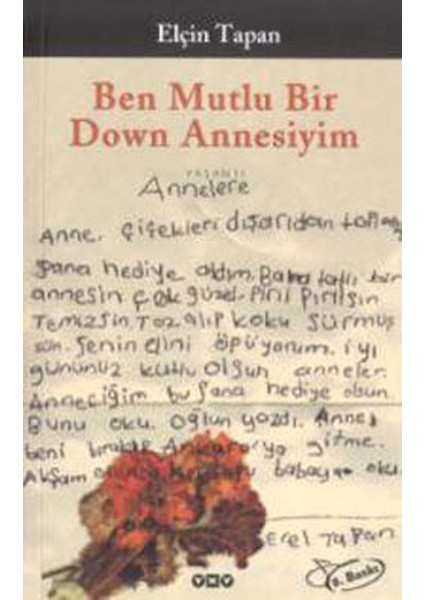 Elçin Tapan
Ben Mutlu Bir
Down Annesiyim
YAŞANTI
Annelere
Anne. Çiçekleri dışarıdan
Sana hediye aldım. Bana tatlı bir
annesin çok güzel. Pırıl pırılsın
Temizsin. Toz alıp koku sürmüş
sün. Senin elini öpüyorum. iyi
gününüz kutlu olsun anneler.
Anneciğim bu sana hediye olsun.
Bunu oku. oğlun yazdı. Anne
beni bırakıp Ankara'ya gitme.
Akşam babaya oku
Erel Tapan
YKY
8. Baskı